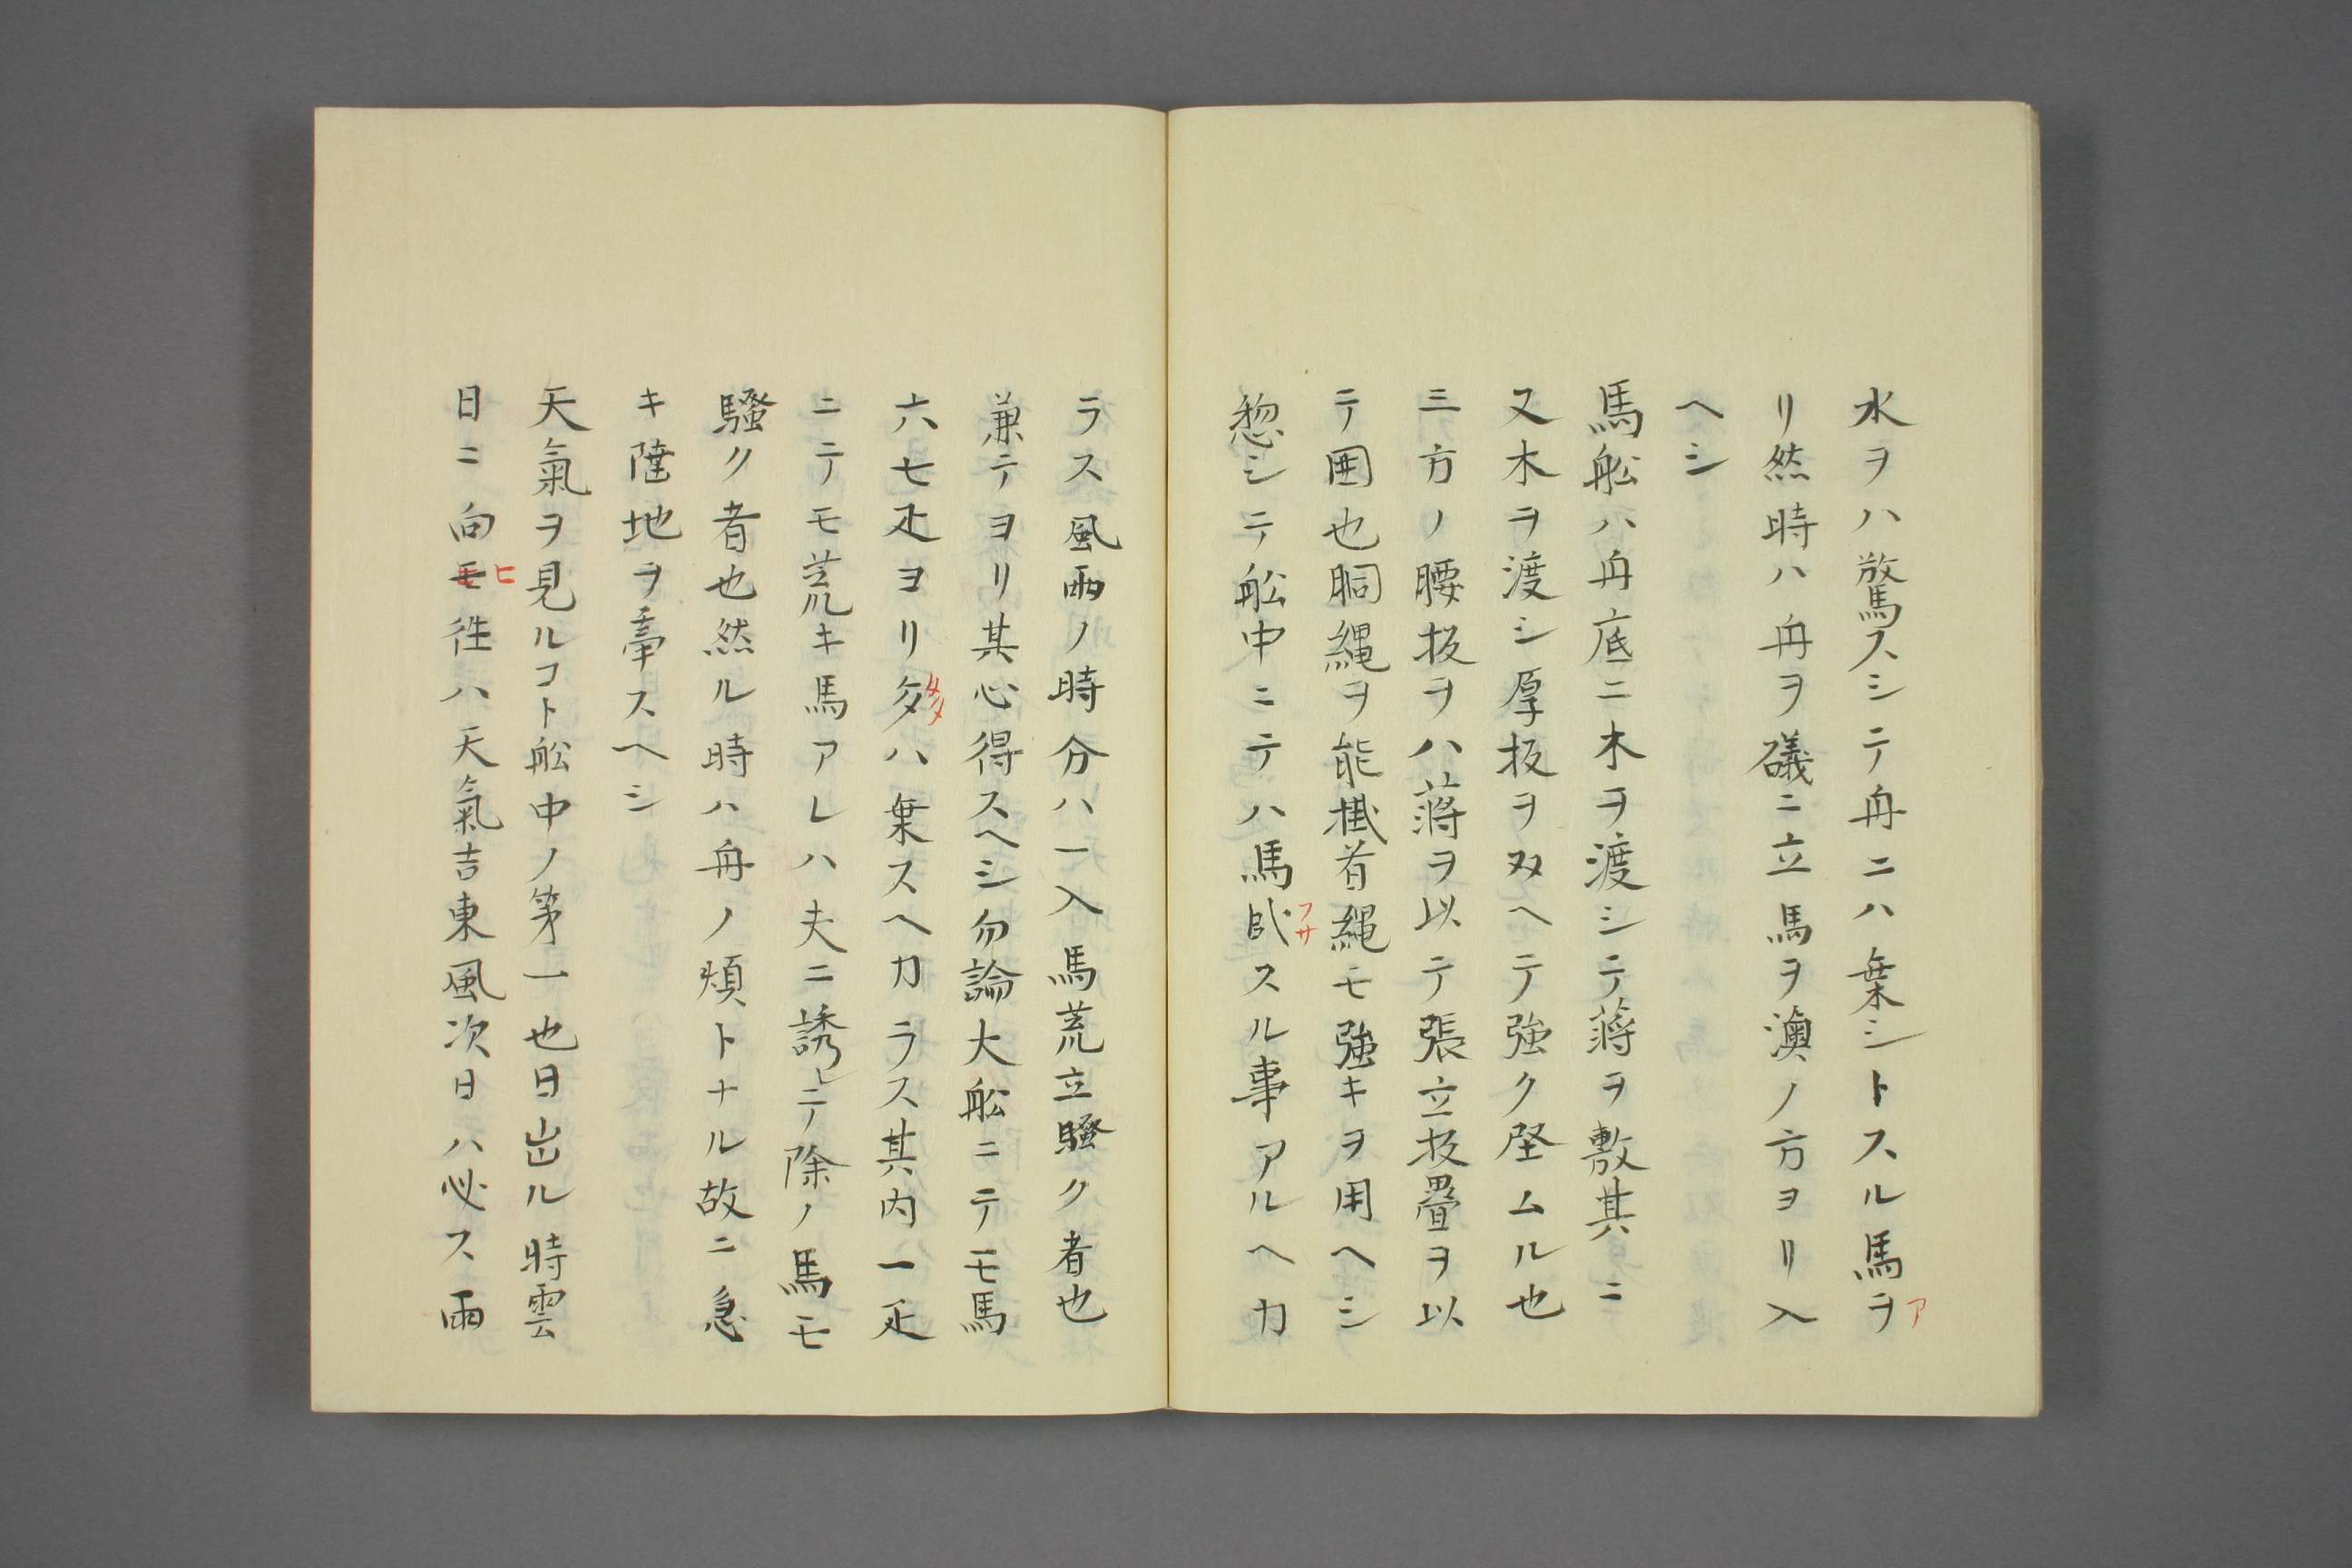 水ヲハ驚スシテ舟ニハ棄シトスル馬ヲア
リ然時ハ舟ヲ礒ニ立馬ヲ澳ノ方ヨリ入
ヘシ
馬舩ハ舟底ニ木ヲ渡シテ蒋ヲ敷其ニ
又木ヲ渡シ厚板ヲ双ヘテ強ク堅ムル也
三方ノ腰板ヲハ蒋ヲ以テ張立板畳ヲ以
テ囲也胴縄ヲ能掛首縄モ強キヲ用ヘシ
惣シテ舩中ニテハ馬臥フサスル事アルヘカ
ラス風雨ノ時分ハ一入馬荒立騒ク者也
兼テヨリ其心得スヘシ勿論大舩ニテモ馬
六七疋ヨリ多ハ棄スヘカラス其内一疋
ニテモ荒キ馬アレハ夫ニ誘レテ除ノ馬モ
騒ク者也然ル時ハ舟ノ煩トナル故ニ急
キ陸地ヲ牽スヘシ
天氣ヲ見ルコト舩中ノ第一也日出ル時雲
日ニ向モヒ徃ハ天氣吉東風次日ハ必ス雨